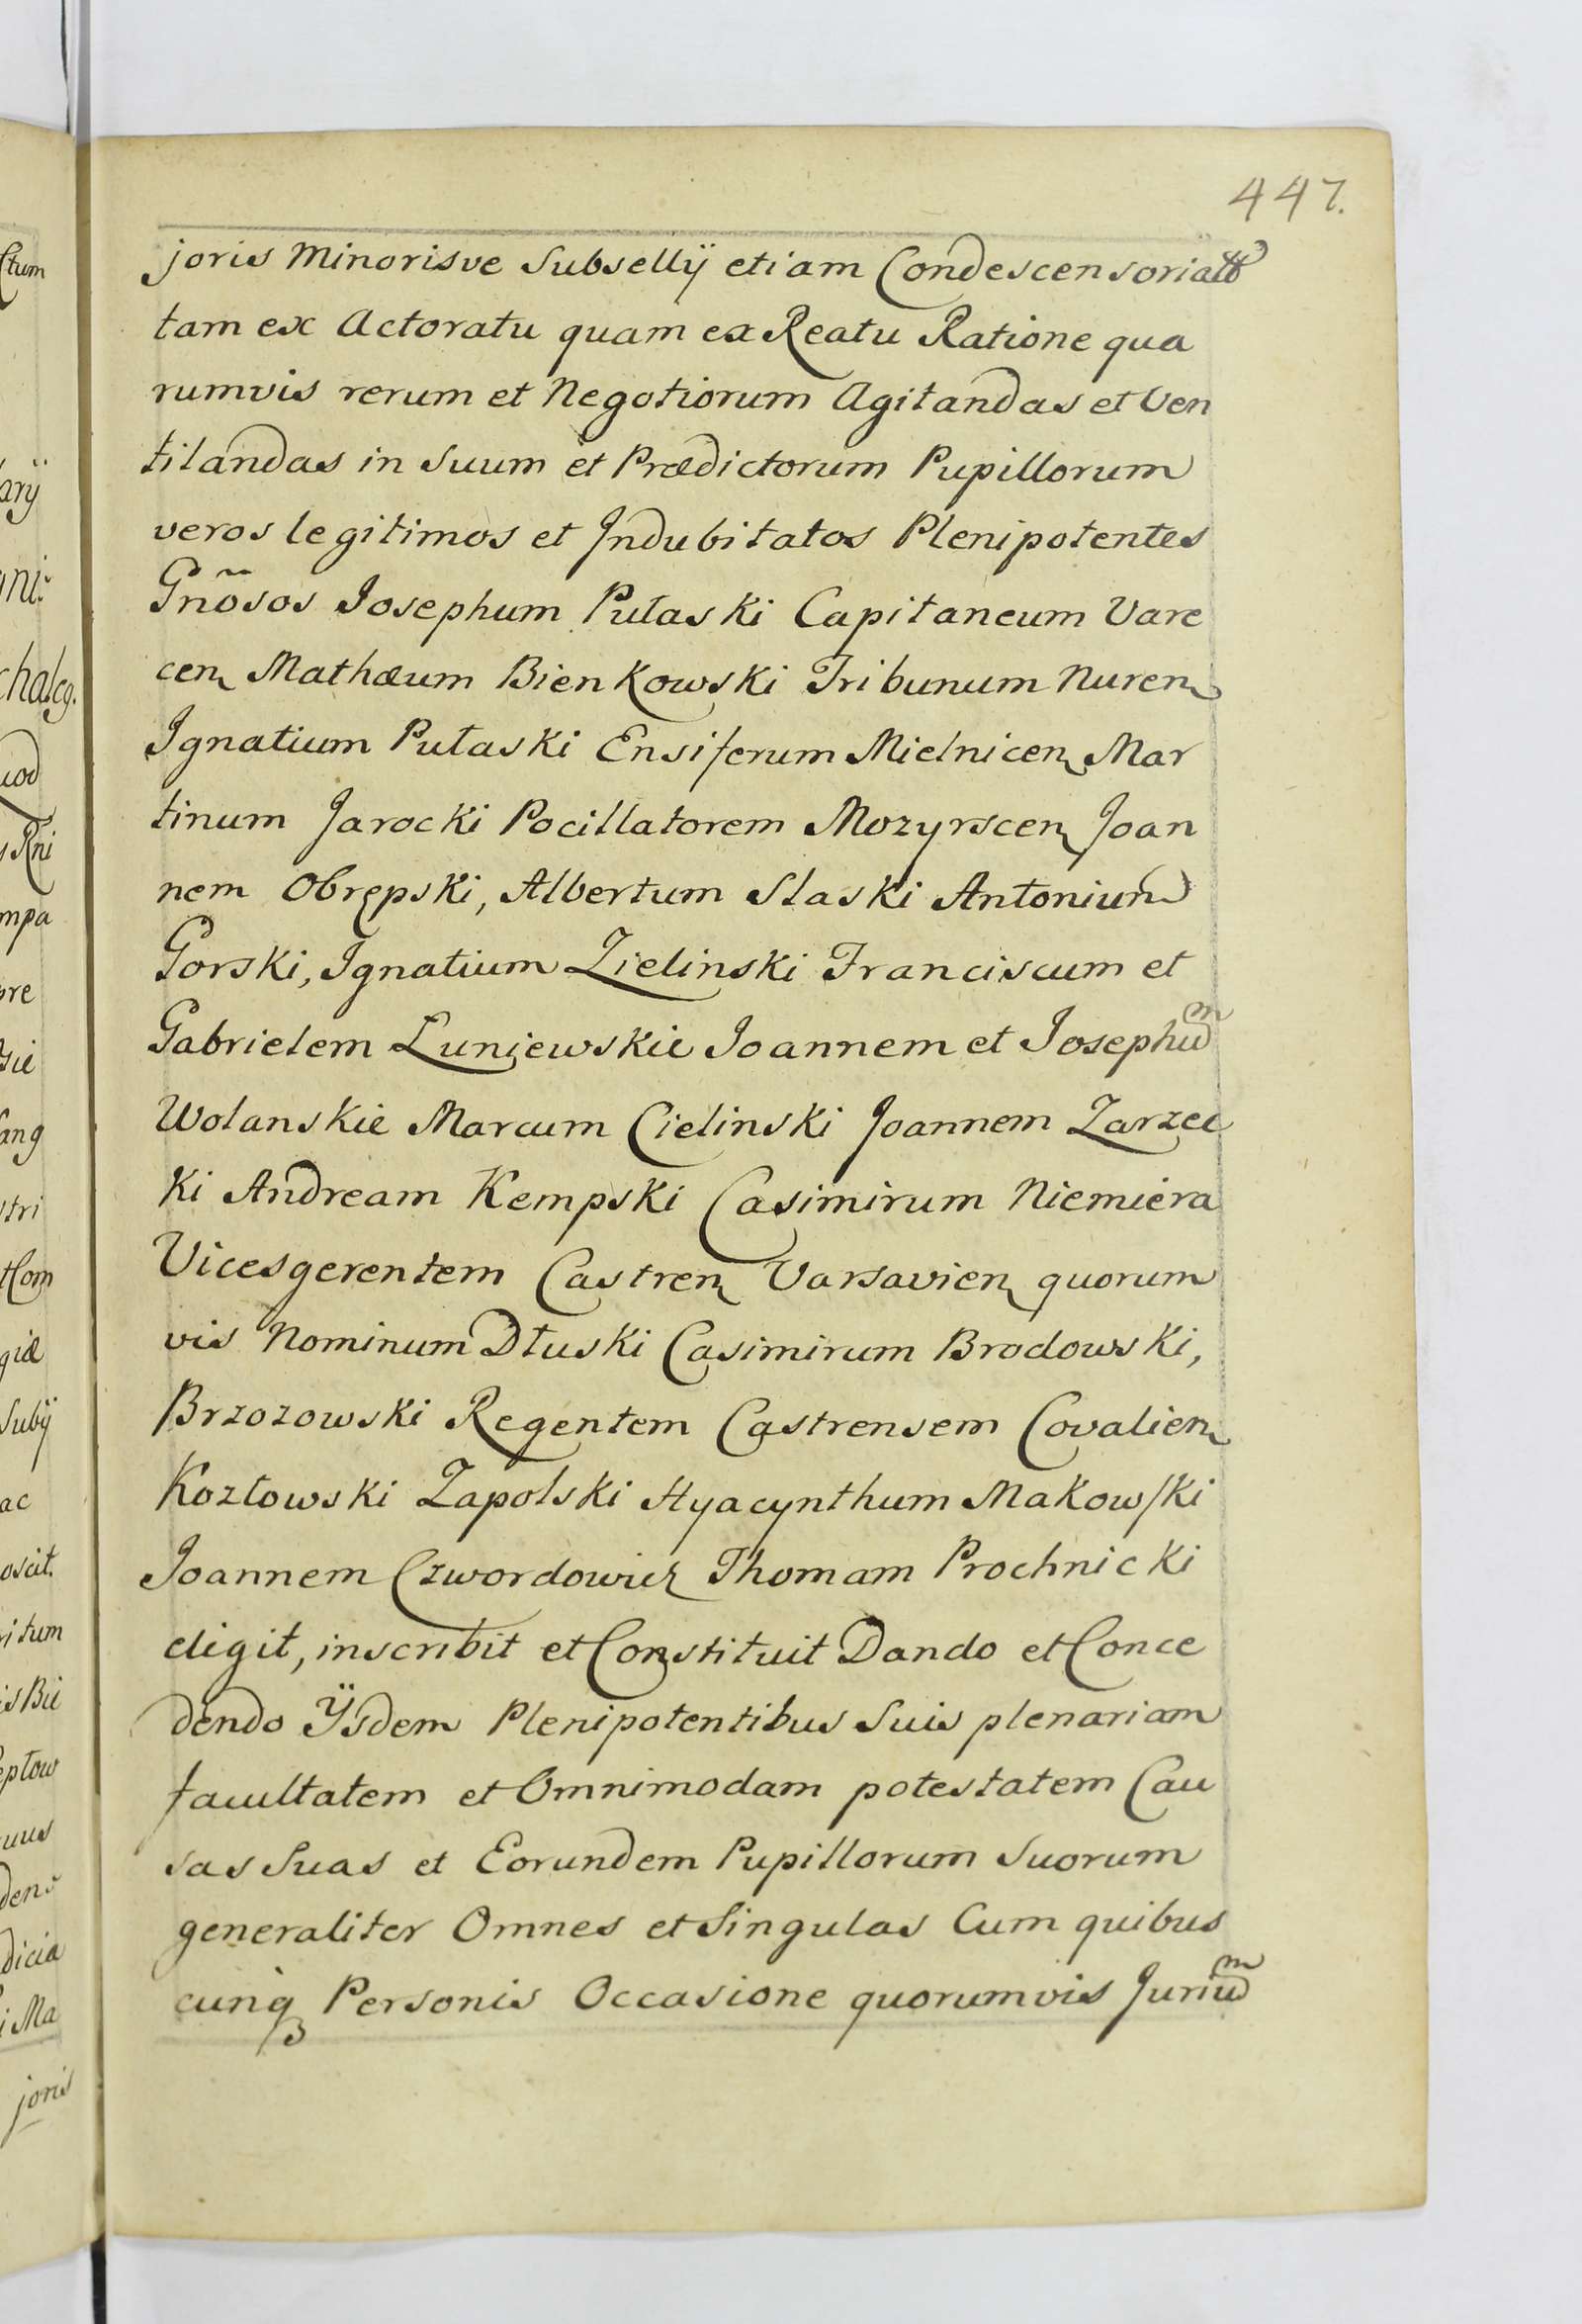 447.
joris Minorisve Subsellÿ etiam Condescensorialb
tam ex Actoratu quam ex Reatu Ratione qua
rumvis rerum et Negotiorum Agitandas et Ven
tilandas in Suum et Prædictorum Pupillorum
veros legitimos et Indubitatos Plenipotentes
Gnõsos Josephum Pułaski Capitaneum Vare
cen Mathæum Bienkowski Tribunum Nuren
Ignatium Pułaski Ensiferum Mielnicen Mar
tinum Jarocki Pocillatorem Mozyrscen Joan
nem Obrępski, Albertum Slaski Antonium
Gorski, Ignatium Zielinski Franciscum et
Gabrielem Luniewskie Joannem et Josephum
Wolanskie Marcum Cielinski Joannem Zarzec
ki Andream Kempski Casimirum Niemiera
Vicesgerentem Castren Varsavien quorum
vis Nominum Dłuski Casimirum Brodowski,
Brzozowski Regentem Castrensem Covalien
Kozłowski Zapolski Hyacynthum Makowski
Joannem Czwordowicz Thomam Prochnicki
eligit, inscribit et Constituit Dando et Conce
dendo Ÿsdem Plenipotentibus Suis plenariam
facultatem et Omnimodam potestatem Cau
sas Suas et Eorundem Pupillorum Suorum
generaliter Omnes et Singulas Cum quibus
cunq Personis Occasione quorumvis Jurium